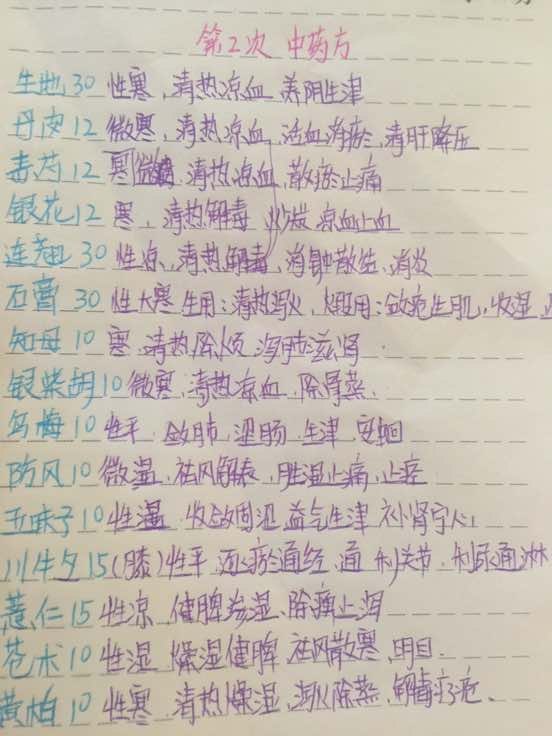 第2次 中药方
生地 30 性寒,清热凉血 养阴生津
丹皮 12 微寒,清热凉血 活血消瘀,清肝降压
赤芍 12 寒微 清热凉血,散瘀止痛
银花 12 寒,清热解毒 凉血止血
连翘 30 性凉,清热解毒,消肿散结,消炎
石膏 30 性大寒 生用:清热泻火,煅用:敛疮生肌,收湿
知母 10 寒,清热除烦 泻肺滋肾
银柴胡 10 微寒,清热凉血 除骨蒸.
乌梅 10 性平 敛肺 涩肠 生津 安蛔
防风 10 微湿,祛风解表,胜湿止痛,止痉
五味子 10 性温 收敛固涩 益气生津 补肾宁心
川牛夕 15(膝)性平 逐瘀通经 通利关节,利尿通淋
薏仁 15 性凉 健脾渗湿 除痹止泻
苍术 10 性湿 燥湿健脾 祛风散寒,明目.
黄柏 10 性寒 清热燥湿,泻火除蒸,解毒疗疮、